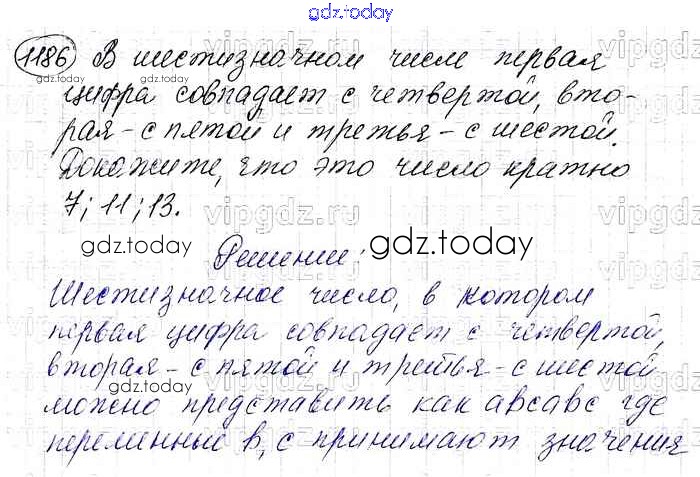 gdz.today
1186 В шестизначном числе первая
gdz.today
цифра совпадает с четвертой, вто-
рая - с пятой и третья - с шестой.
Докажите, что это число кратно
7; 11; 13.
gdz.today
Решение:
gdz.today
Шестизначное число, в котором
первая цифра совпадает с четвертой,
вторая - с пятой и третья - с шестой
gdz.today
можно представить как авсавс где
переменные в, с принимают значения
vipgdz.ru